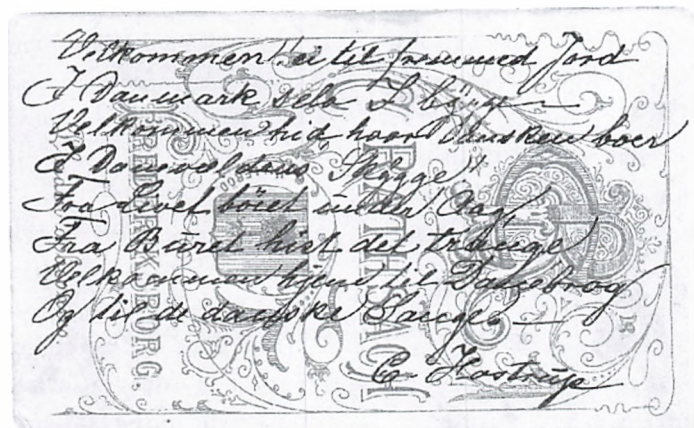 Velkommen! ei til fremmed Jord
I Danmark selv I bygge
Velkommen hid hvor Dansken boer
I Danevældens Skygge"
Fra Livet böiet under Aag,
Fra Buret hist det trange
Velkommen hjem til Danebrog
Og til de danske Sange
C. Hostrup
FREDERIKSBORG.